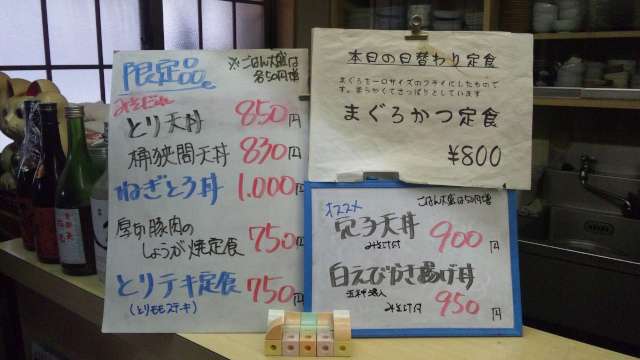 限定品
※ごはん大盛は
各50円増
みそだれ
とり天丼 850円
桶狭間天丼 830円
ねぎとろ丼 1.000円
厚切豚肉の
しょうが焼定食 750円
とりテキ定食 750円
(とりモモステキ)
本日の日替わり定食
まぐろを一口サイズのフライにしたもので
す。柔らかくてさっぱりとしています
まぐろかつ定食
¥800
オススメ
ごはん大盛は50円増
穴子天丼 900円
みそ汁付
白えびかき揚げ丼
みそ汁付 950円